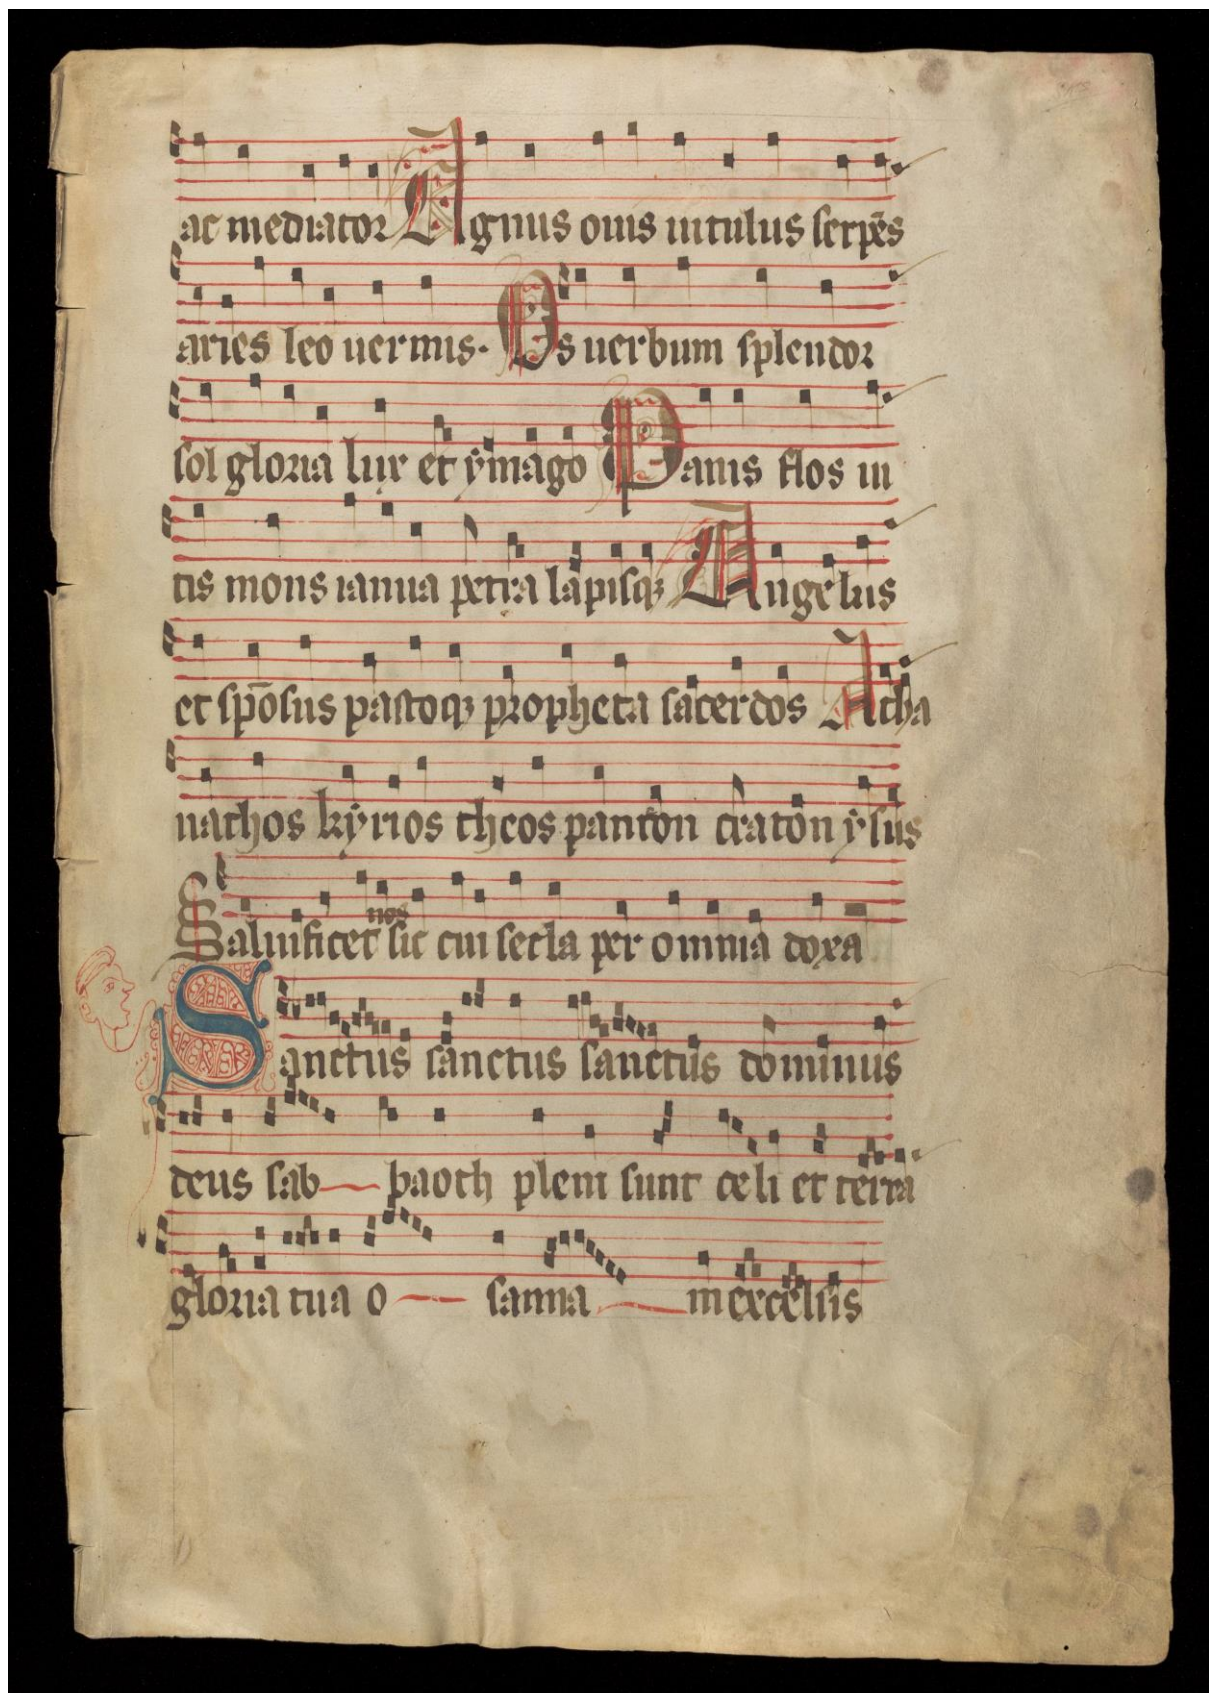 ac mediator Agnus ouis uitulus serpēs
aries leo uermis. Os uerbum splendor
sol gloria lux et ẏmago Panis flos ui
tis mons ianua petra lapisqꝫ Angelus
et spōsus pastoqꝫ propheta sacerdos Atha
nathos kẏrios theos panton craton ẏsus
nos
Saluificet sic cui secla per omnia doxa
Sanctus sanctus sanctus dominus
deus sab baoth pleni sunt celi et terra
gloria tua o sanna in excelsis